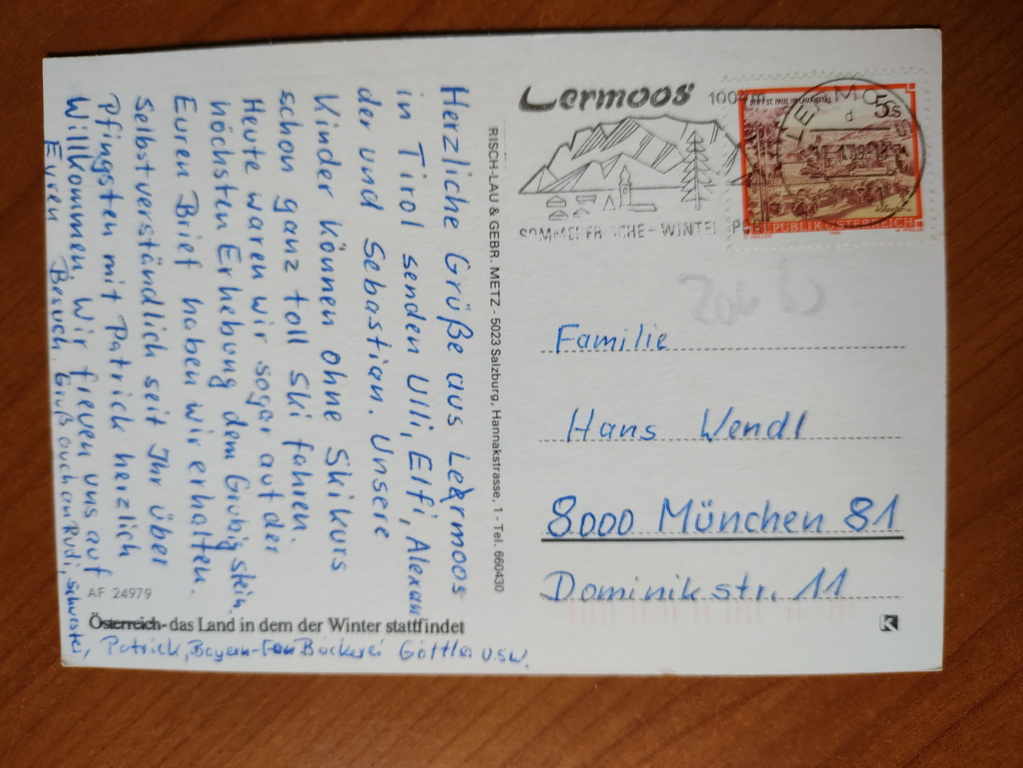 Herzliche Grüße aus Lermoos
in Tirol senden Ulli, Elfi, Alexan
der und Sebastian. Unsere
Kinder können ohne Skikurs
schon ganz toll Ski fahren.
Heute waren wir sogar auf der
höchsten Erhebung dem Grubigstein.
Euren Brief haben wir erhalten.
Selbstverständlich seit Ihr über
Pfingsten mit Patrick herzlich
Willkommen. Wir freuen uns auf
Euren Besuch. Gruß auch an Rudi, Schurstei,
Patrick, Bayern-Fan Bäckerei Göttler u.s.w.
AF 24979
Österreich - das Land in dem der Winter stattfindet
RISCH-LAU & GEBR. METZ - 5023 Salzburg, Hannakstrasse, 1 - Tel. 660430
Lermoos 1004 m
SOMMERFRISCHE - WINTERSPORT
STIFT ST. PAUL IM LAVANTTAL
5 S
REPUBLIK ÖSTERREICH
LERMOOS
d
Familie
Hans Wendl
8000 München 81
Dominikstr. 11
K